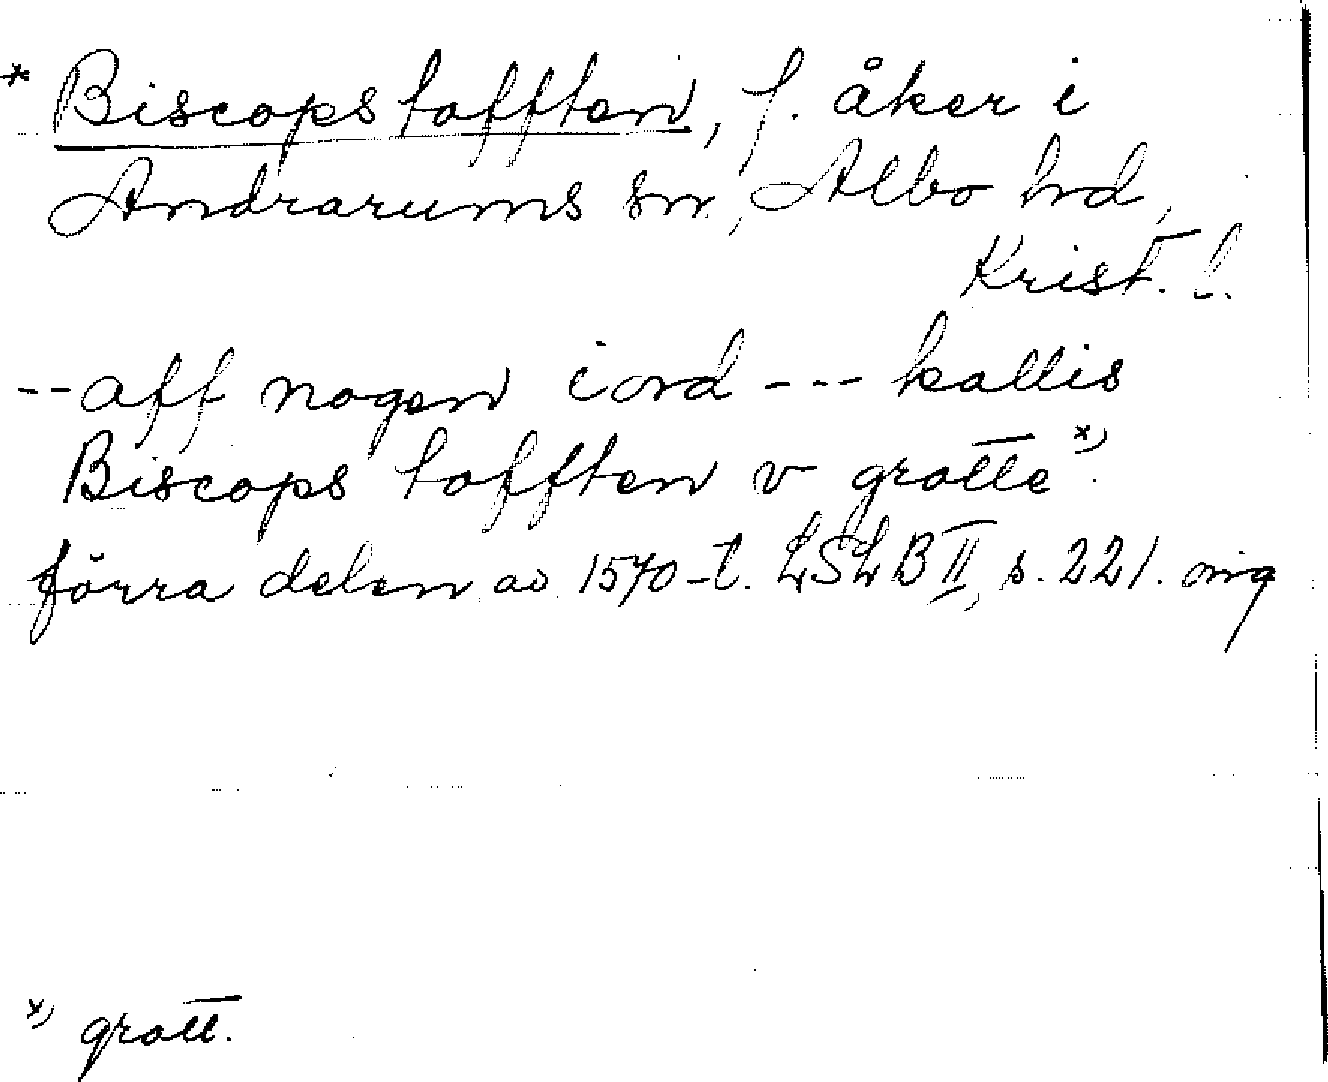 * Biscops tofften, f. åker i
Andrarums sn, Albo hd,
Krist. l.
-- aff nogen iord --- kallis
Biscops tofften v grotte x)
förra delen av 1570-t. LSLB II, s. 221. orig
x) grott.